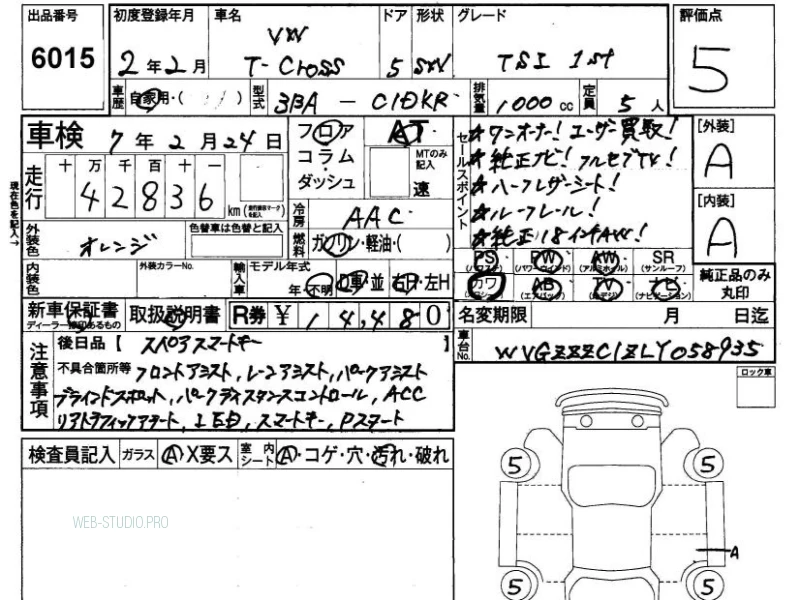 出品番号 初度登録年月 車名 ドア 形状 グレード 評価点
6015 2年2月 VW T-Cross 5 SUV TSI 1st 5
車歴 自家用・( ) 型式 3BA - C1DKR 排気量 1000 cc 定員 5人
車検 7年2月24日 フロア AT
コラム MTのみ記入
ダッシュ 速
走行 十 万 千 百 十 一
42836 km (走行距離マークを記入)
セールスポイント
★ワンオーナー!ユーザー買取!
★純正ナビ!フルセグTV!
★ハーフレザーシート!
★ルーフレール!
★純正18インチAW!
[外装]
A
[内装]
A
現在色を記入→
冷房 AAC
外装色 オレンジ 色替車は色替と記入
燃料 ガソリン・軽油・( )
内装色 外装カラーNo. 輸入車 モデル年式
年・不明 D車・並 右H・左H
PS (パワステ) PW (パワーウィンド) AW (アルミホイル) SR (サンルーフ)
カワ AB (エアバック) TV ナビ (ナビゲーション)
純正品のみ丸印
新車保証書 ディーラー捺印あるもの 取扱説明書 R券 ¥ 14,480
名変期限 月 日迄
車台No. WVGZZZC1ZLY058935
注意事項
後日品【 スペアスマートキー 】
不具合箇所等 フロントアシスト,レーンアシスト,パークアシスト
ブラインドスポット,パークディスタンスコントロール,ACC
リアトラフィックアラート,LED,スマートキー,Pスタート
ロック車
検査員記入 ガラス A・X要ス 室内シート A・コゲ・穴・汚れ・破れ
5 5
A
5 5
WEB-STUDIO.PRO